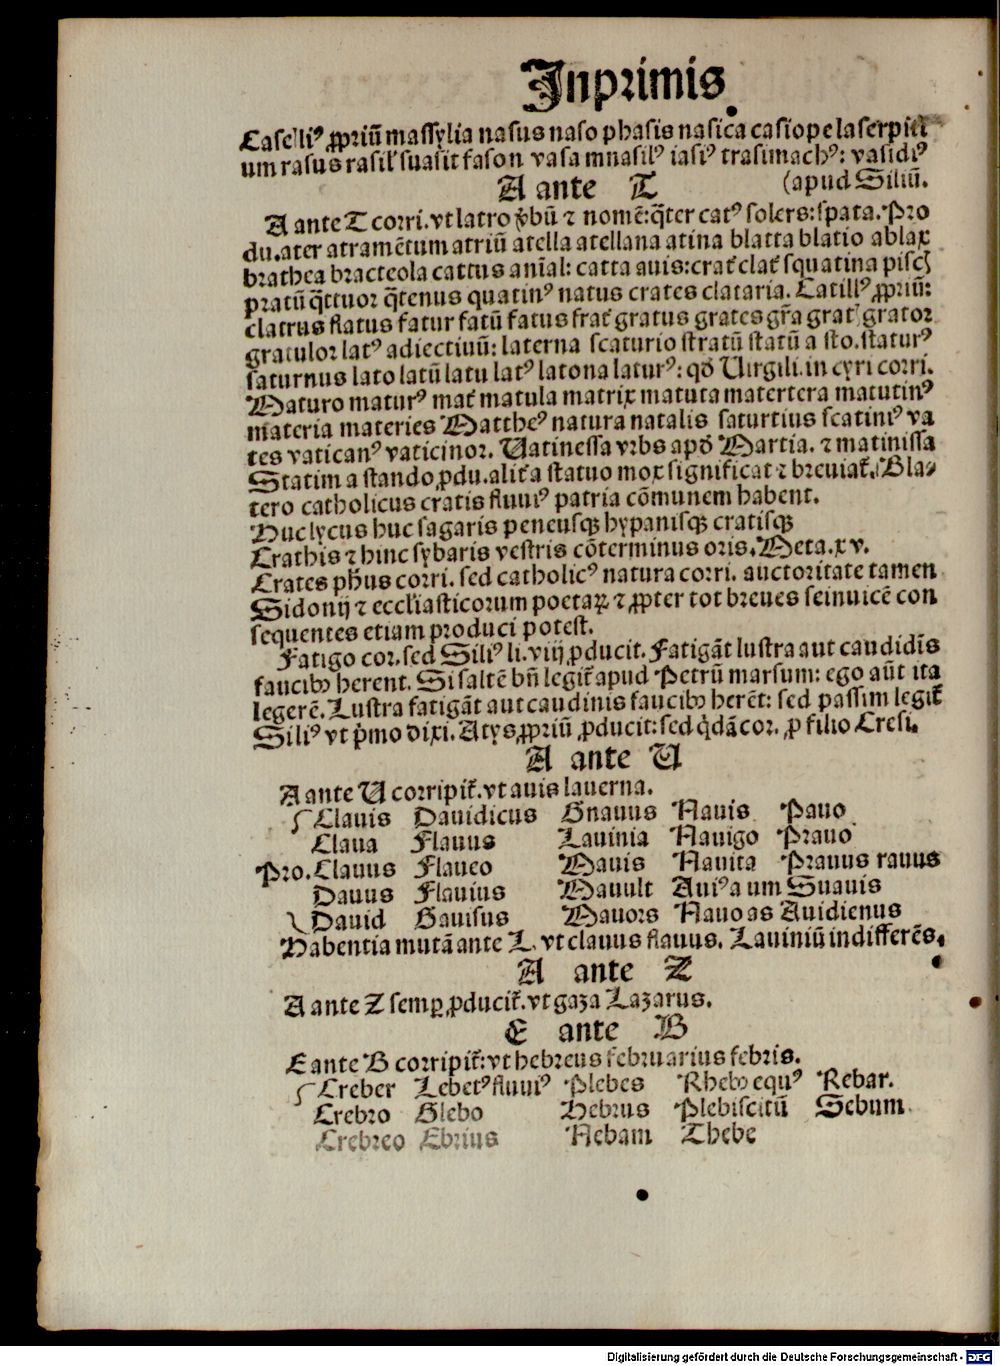 Inprimis
Caselliꝰ ꝓpriū massylia nasus naso phasis nasica casiope laserpici
um rasus rasil' suasit fason vasa mnasilꝰ iasiꝰ trasimachꝰ: vasidiꝰ
A ante T (apud Siliū.
A ante T corri. vt latro v̄bū ⁊ nomē: q̄ter catꝰ solers: spata. Pro
du. ater atramētum atriū atella atellana atina blatta blatio ablax
brathea bracteola cattus anīal: catta auis: crat᷑ clat᷑ squatina pisc
pratū q̄ttuor q̄tenus quatinꝰ natus crates clataria. Catillꝰ ꝓpriū:
clatrus flatus fatur fatū fatus frat᷑ gratus grates gr̄a grat᷑ grator
graculor latꝰ adiectiuū: laterna scaturio stratū statū a sto. staturꝰ
saturnus lato latū latu latꝰ latona laturꝰ: qđ Uirgili. in cyri corri.
Maturo maturꝰ mat᷑ matula matrix matuta matertera matutinꝰ
materia materies Mattheꝰ natura natalis saturtius scatiniꝰ va
tes vaticanꝰ vaticinor. Uatinessa vrbs apđ Martia. ⁊ matinissa
Statim a stando ꝓdu. alit᷑ a statuo mox significat ⁊ breuiat᷑. Bla⸗
tero catholicus cratis fluuiꝰ patria cōmunem habent.
Huc lycus huc sagaris peneusqꝫ hypanisqꝫ cratisqꝫ
Crathis ⁊ hinc sybaris vestris cōterminus oris. Meta. xv.
Crates ph̄us corri. sed catholicꝰ natura corri. auctoritate tamen
Sidonij ⁊ eccl'iasticorum poetaꝝ ⁊ ꝓpter tot breues seinuicē con
sequentes etiam produci potest.
Fatigo cor. sed Siliꝰ li. viij ꝓducit. Fatigāt lustra aut caudidīs
faucibꝰ herent. Si saltē bn̄ legit᷑ apud Petrū marsum: ego aūt ita
legerē. Lustra fatigāt aut caudinis faucibꝰ herēt: sed passim legit᷑
Siliꝰ vt p̄mo dixi. Atys ꝓpriū ꝓducit: sed q̇dā cor. ꝓ filio Cresi.
A ante U
A ante U corripit᷑. vt auis lauerna.
Clauis Dauidicus Gnauus Nauis Pauo
Claua Flauus Lauinia Nauigo Prauo
Pro. Clauus Flaueo Mauis Nauita Prauus rauus
Dauus Flauius Mauult Auiꝰ a um Suauis
Dauid Gauisus Mauors Nauo as Auidienus
Habentia mutā ante L. vt clauus flauus. Lauiniū indifferēs.
A ante Z
A ante Z semꝑ ꝓducit᷑. vt gaza Lazarus.
E ante B
E ante B corripit᷑: vt hebreus februarius febris.
Creber Lebetꝰ fluuiꝰ Plebes Rhebꝰ equꝰ Rebar.
Crebro Glebo Hebrus Plebiscitū Sebum
Crebreo Ebrius Nebam Thebe
Digitalisierung gefördert durch die Deutsche Forschungsgemeinschaft - DFG